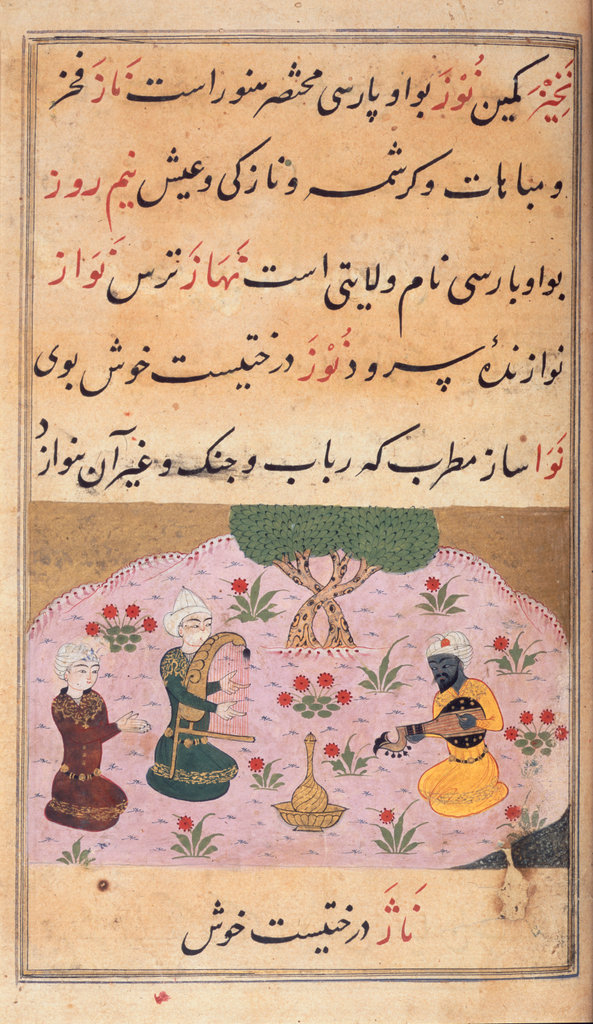 نَخِیْز کمین نُوْز بواو پارسی مختصر هنوز است نَاز فخر
و مباهات و کرشمه و نازکی و عیش نیم روز
بواو پارسی نام ولایتی است نَهَاز ترس نَوَاز
نوازندهٔ و سرود نُوْز درختیست خوش بوی
نَوَا ساز مطرب که رباب و چنک و غیر آن بنوازد
نَاژ درختیست خوش